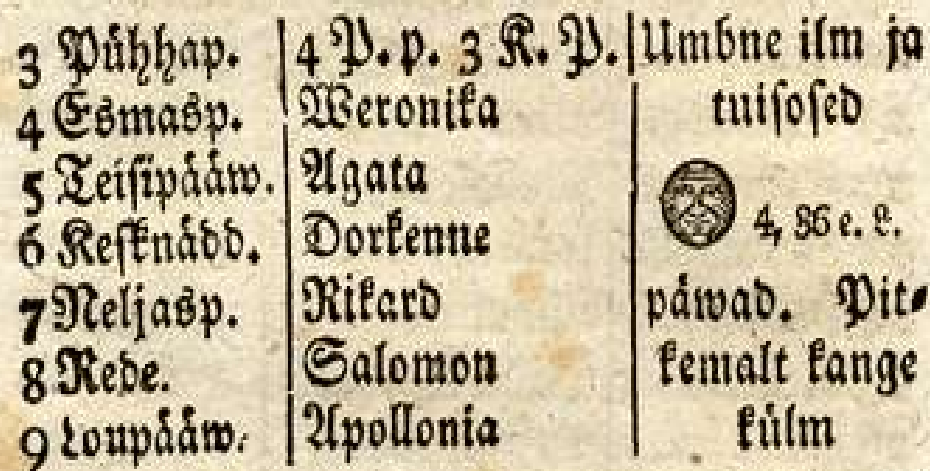 3 Pühhap. 4 P. p. 3 K. P. Umbne ilm ja
4 Esmasp. Weronika tuisosed
5 Teisipääw. Agata
6 Kesknädd. Dorkenne 4, 36 e. L.
7 Neljasp. Rikard päwad. Pit-
8 Rede. Salomon kemalt kange
9 Loupääw. Apollonia külm